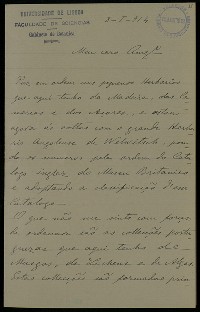 UNIVERSIDADE DE LISBOA
FACULDADE DE SCIENCIAS
Gabinete de Botanica
3-5-914
Meu caro Amigo
Puz em ordem uns pequenos herbarios
que aqui tenho da Madeira, das Ca-
narias e dos Açores, e estou
agora ás voltas com o grande herba-
rio Angolense de Welwitsch, pon-
do os numeros pela ordem do Cata-
logo inglez, do Museu Britanico
e adoptando a classificação d'esse
Catalogo.
O que não me sinto com forças
de ordenar são as collecções portu-
guezas que aqui tenho de
Musgos, de Lichens e de Algas.
Estas collecções são formadas